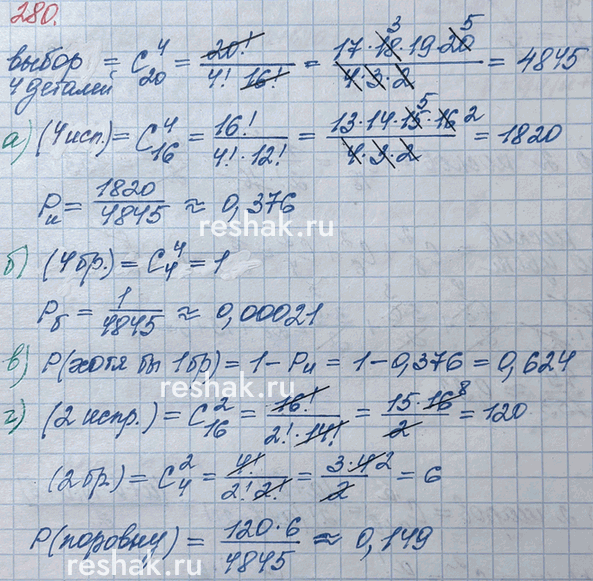 280.
выбор 4 деталей = C₂₀⁴ = 20!/(4! 16!) = (17·18³·19·20⁵)/(4·3·2) = 4845
а) (4исп.) = C₁₆⁴ = 16!/(4!·12!) = (13·14·15⁵·16²)/(4·3·2) = 1820
Pи = 1820/4845 ≈ 0,376
reshak.ru
б) (4бр.) = C₄⁴ = 1
Pб = 1/4845 ≈ 0,00021
в) P(хотя бы 1бр) = 1 - Pи = 1-0,376 = 0,624
reshak.ru
г) (2 испр.) = C₁₆² = 16!/(2!·14!) = (15·16⁸)/2 = 120
(2бр.) = C₄² = 4!/(2! 2!) = (3·4²)/2 = 6
P(поровну) = (120·6)/4845 ≈ 0,149
reshak.ru